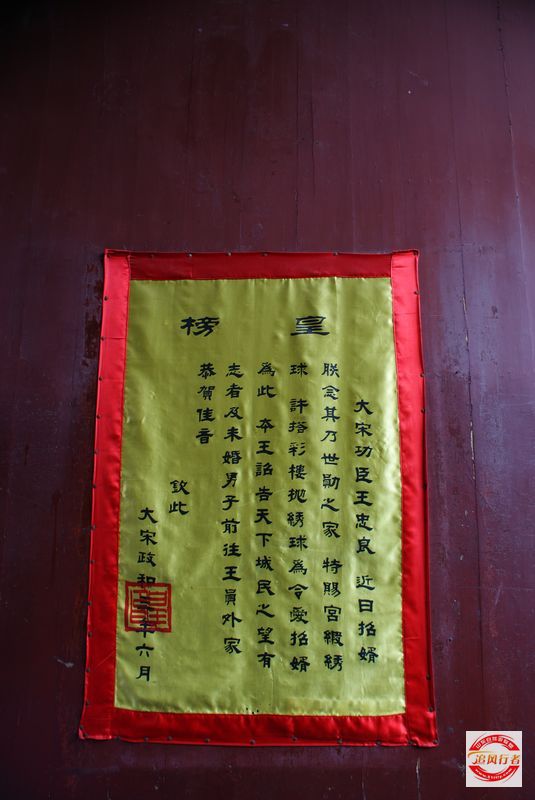 皇榜
大宋功臣王忠良 近日招婿
朕念其乃世勋之家 特賜宮緞綉
球 許搭彩樓抛綉球為令愛招婿
為此 本王詔告天下城民之望有
志者及未婚男子前往王員外家
恭賀佳音
欽此
大宋政和三年六月
追风行者